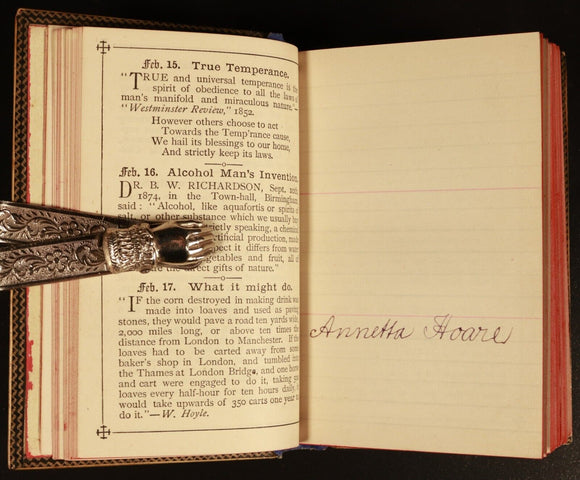 Feb. 15. True Temperance.
"TRUE and universal temperance is the
spirit of obedience to all the laws of
man's manifold and miraculous nature."—
"Westminster Review," 1852.
However others choose to act
Towards the Temp'rance cause,
We hail its blessings to our home,
And strictly keep its laws.
Feb. 16. Alcohol Man's Invention.
DR. B. W. RICHARDSON, Sept. 20th,
1874, in the Town-hall, Birmingham,
said: "Alcohol, like aquafortis or spirits of
salt, or other substance which we usually buy
strictly speaking, a chemical
artificial production, made
respect it differs from water
vegetables and fruit, all of
are the direct gifts of nature."
Feb. 17. What it might do.
"IF the corn destroyed in making drink was
made into loaves and used as paving
stones, they would pave a road ten yards wide,
2,000 miles long, or above ten times the
distance from London to Manchester. If the
loaves had to be carted away from some
baker's shop in London, and tumbled into
the Thames at London Bridge, and one horse
and cart were engaged to do it, taking 500
loaves every half-hour for ten hours daily, it
would take upwards of 350 carts one year to
do it."—W. Hoyle.
Annetta Hoare